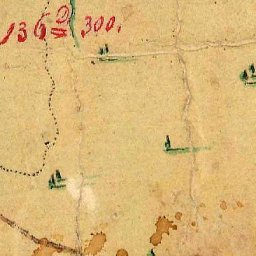 136 D= 300.